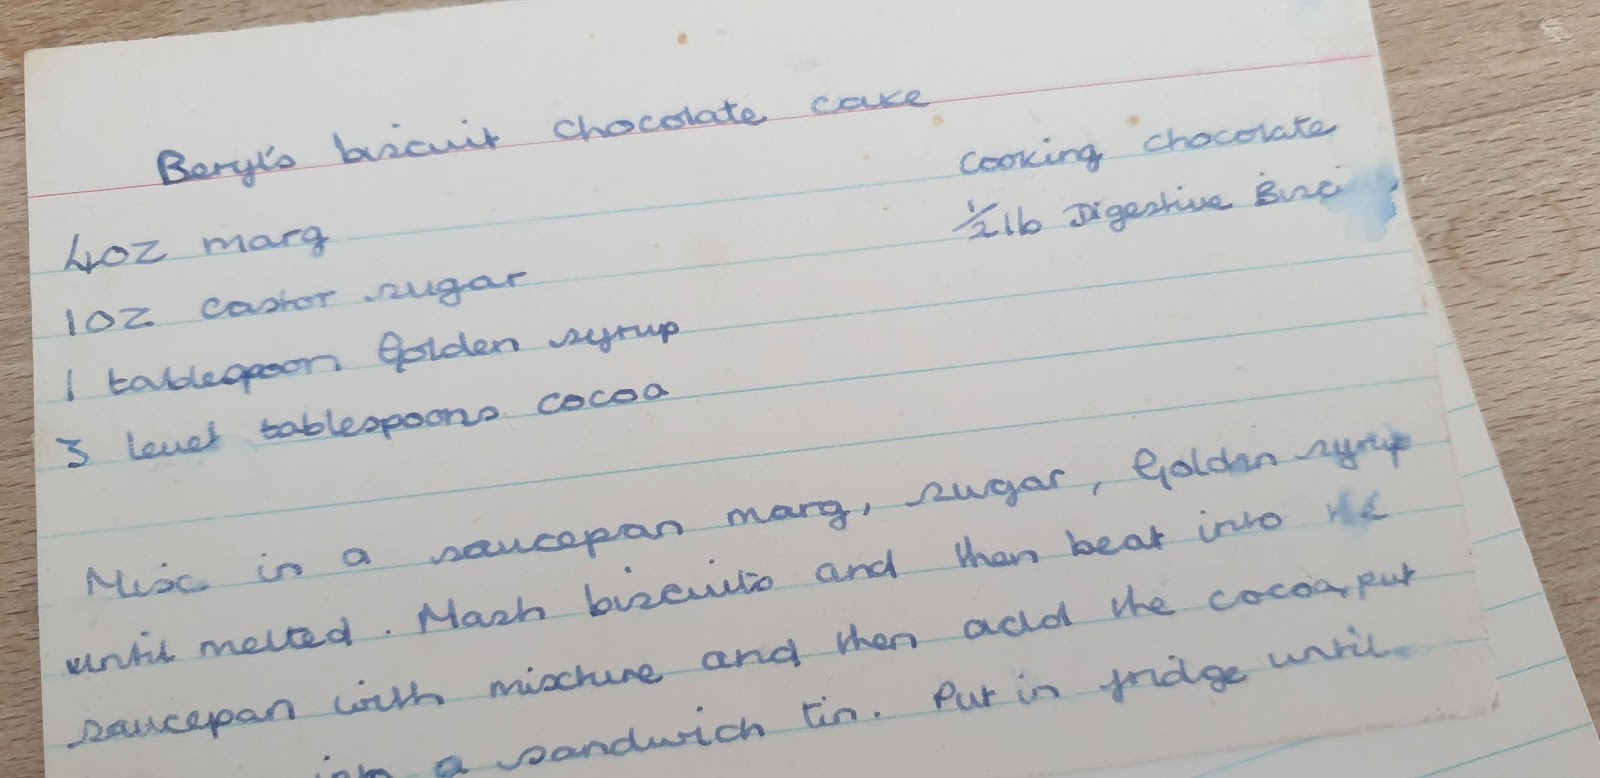 Beryl's biscuit chocolate cake
4oz marg
1oz castor sugar
1 tablespoon Golden syrup
3 level tablespoons cocoa
Cooking chocolate
1/2 lb Digestive
Mix in a saucepan marg, sugar, Golden syrup
until melted. Mash biscuits and then beat into
saucepan with mixture and then add the cocoa, put
into a sandwich tin. Put in fridge until